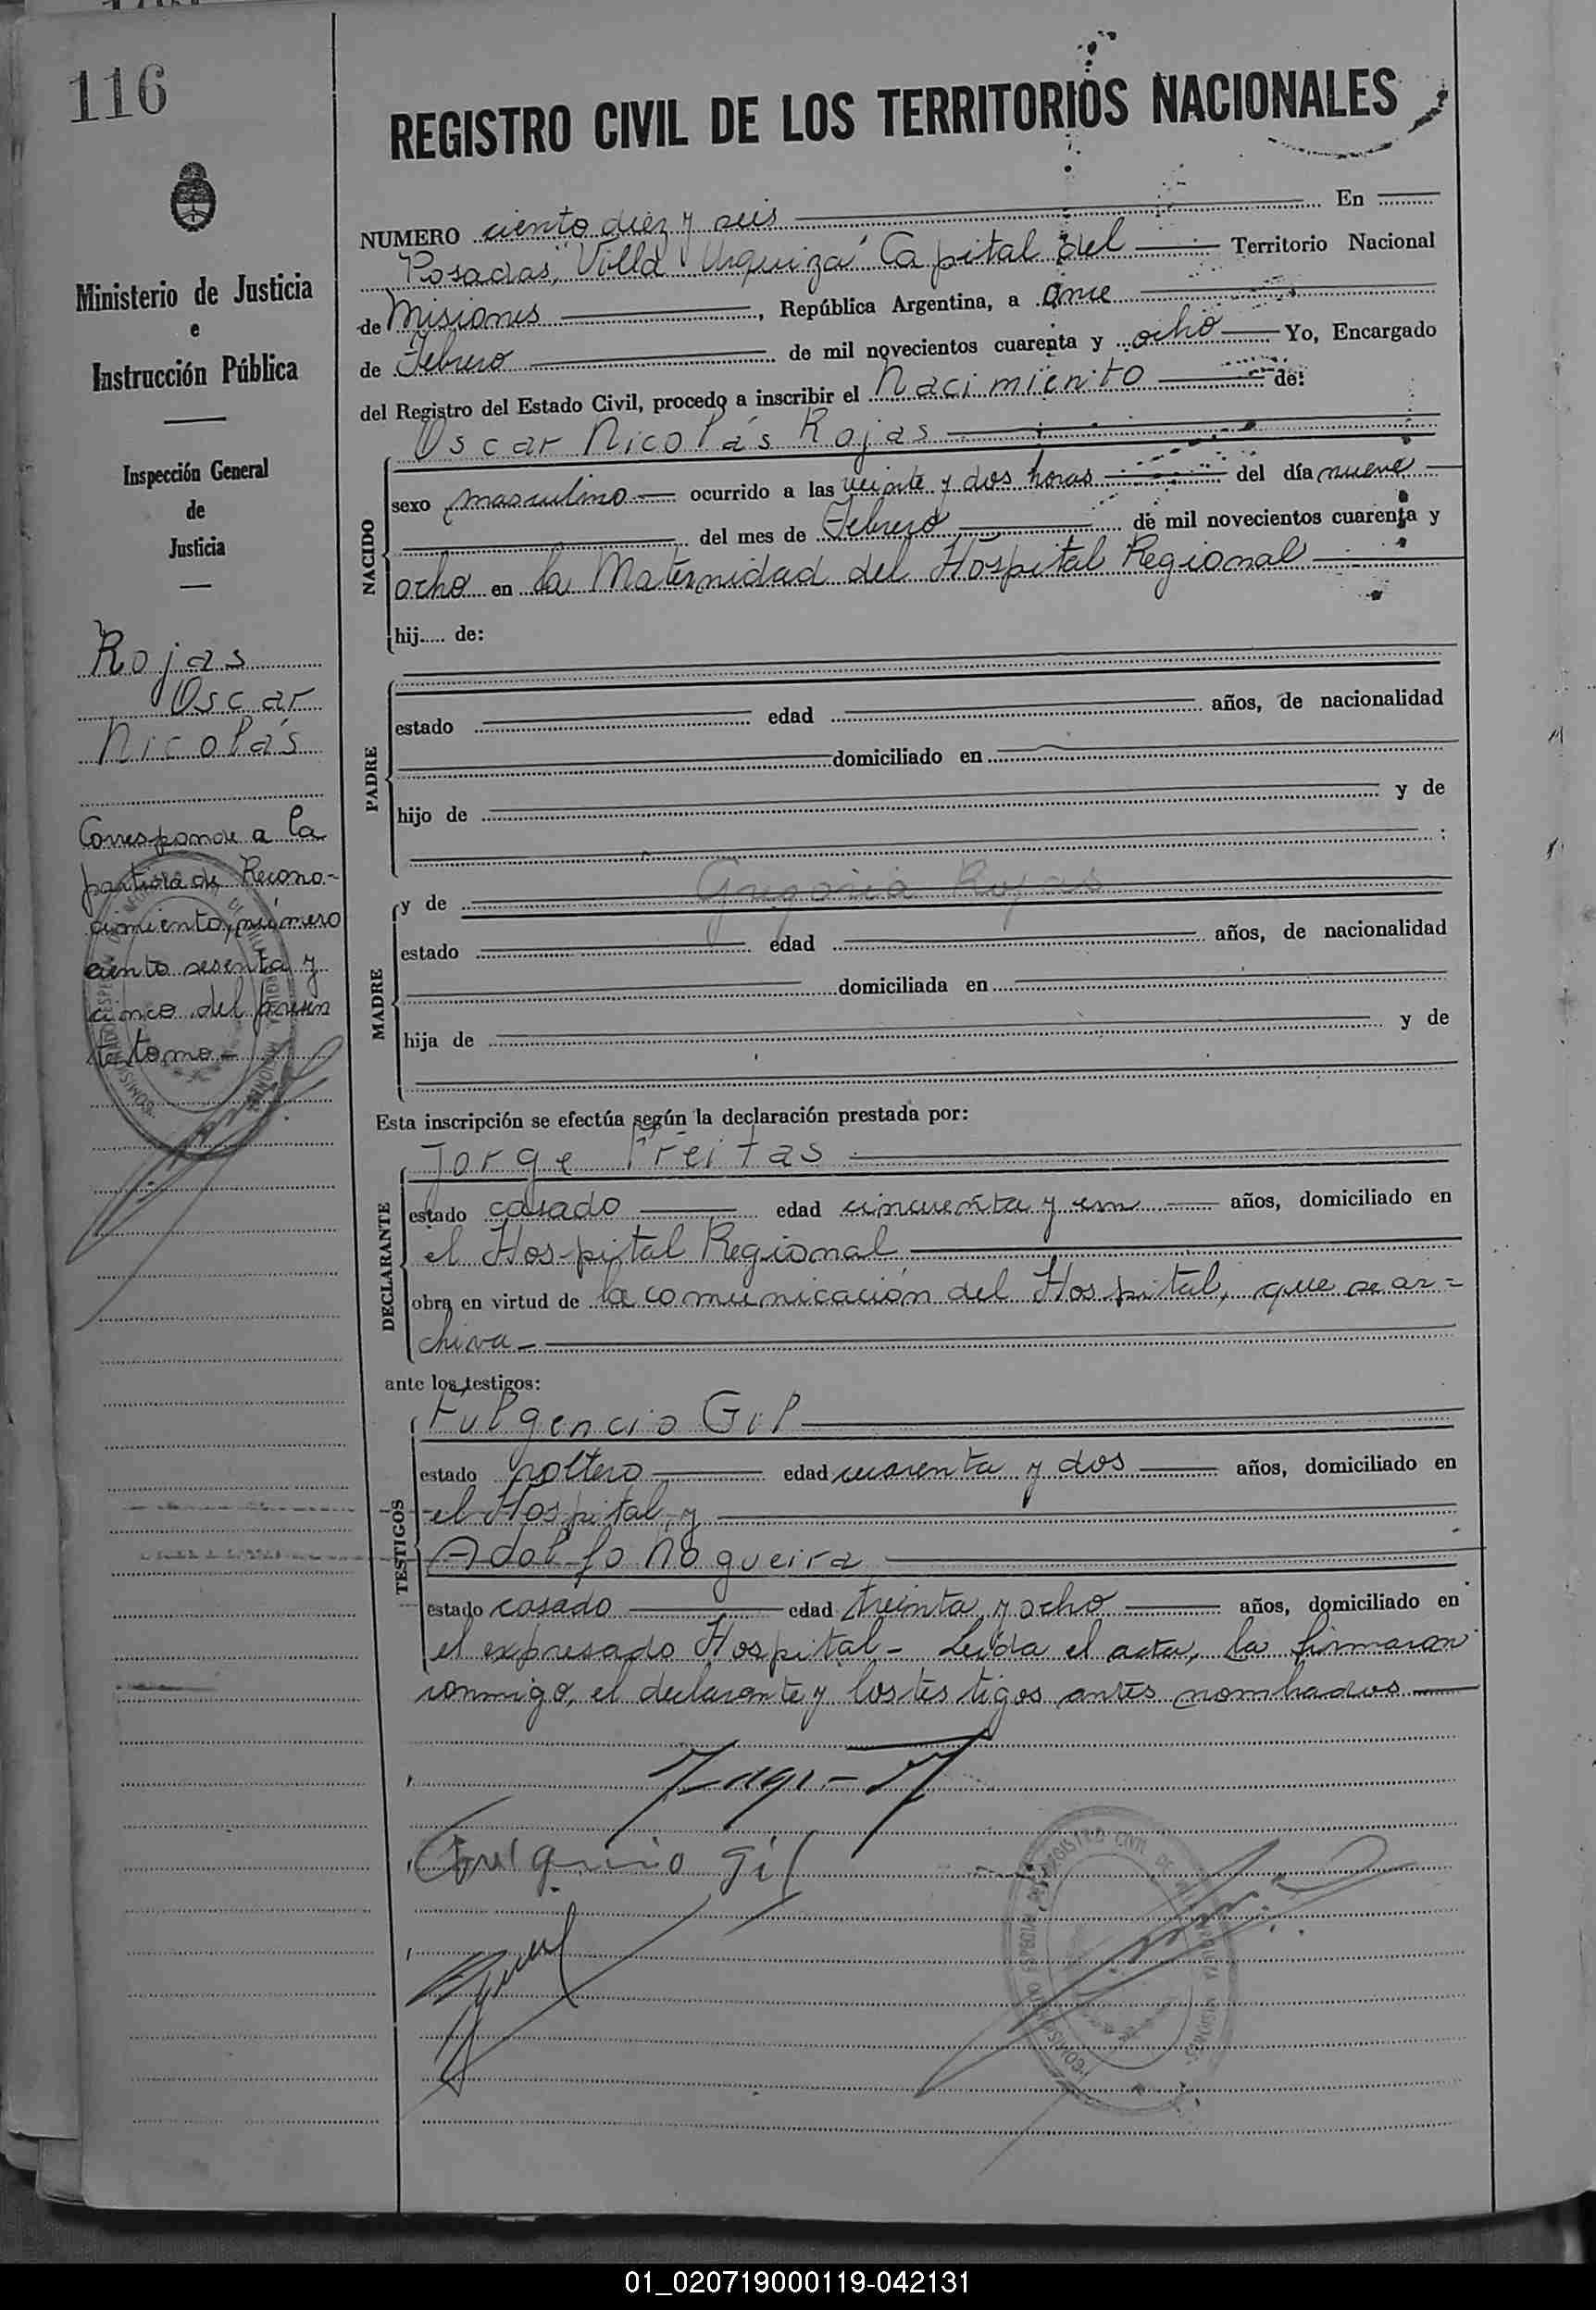 116
REGISTRO CIVIL DE LOS TERRITORIOS NACIONALES
Ministerio de Justicia
e
Instrucción Pública
Inspección General
de
Justicia
Rojas
Oscar
Nicolás
Corresponde a la
partida de Recono-
cimiento, número
ciento sesenta y
cinco del presen
te tomo -
NUMERO ciento diez y seis En
Posadas, "Villa Urquiza" Capital del Territorio Nacional
de Misiones, República Argentina, a once
de Febrero de mil novecientos cuarenta y ocho Yo, Encargado
del Registro del Estado Civil, procedo a inscribir el Nacimiento de:
Oscar Nicolás Rojas
NACIDO
sexo masculino ocurrido a las veinte y dos horas del día nueve
del mes de Febrero de mil novecientos cuarenta y
ocho en la Maternidad del Hospital Regional
hij..... de:
PADRE
estado edad años, de nacionalidad
domiciliado en
hijo de y de
:
MADRE
y de Gregoria Rojas
estado edad años, de nacionalidad
domiciliada en
hija de y de
Esta inscripción se efectúa según la declaración prestada por:
DECLARANTE
Jorge Freitas
estado casado edad cincuenta y un años, domiciliado en
el Hospital Regional
obra en virtud de la comunicación del Hospital, que se ar=
chiva -
ante los testigos:
TESTIGOS
Fulgencio Gil
estado soltero edad cuarenta y dos años, domiciliado en
el Hospital, y
Adolfo Nogueira
estado casado edad treinta y ocho años, domiciliado en
el expresado Hospital - Leida el acta, la firmaron
conmigo, el declarante y los testigos antes nombrados
Fulgencio Gil
REGISTRO CIVIL DE
01_020719000119-042131